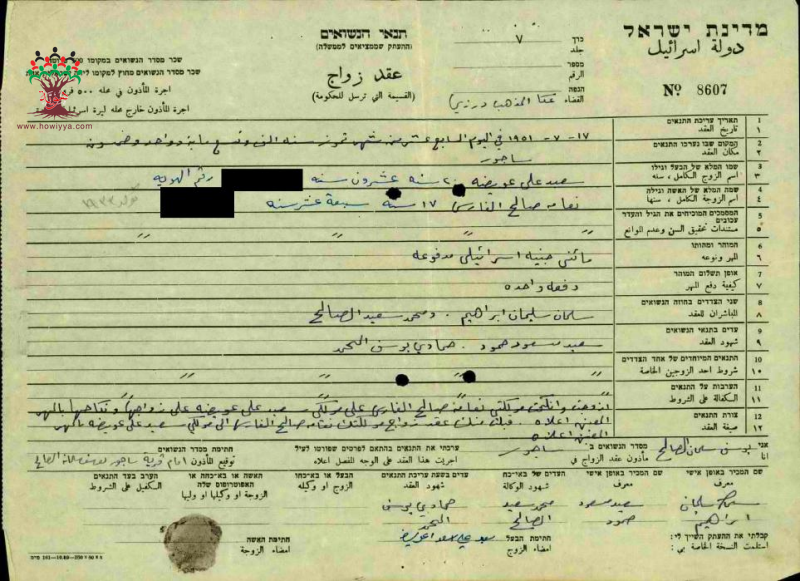 מדינת ישראל
دولة اسرائيل
תנאי הנשואים
(ההעתק שממציאים לממשלה)
عقد زواج
(القسيمة التي ترسل للحكومة)
שכר מסדר הנשואים במקומו
שכר מסדר הנשואים מחוץ למקומו
اجرة المأذون في محله ٥٠٠
اجرة المأذون خارج محله ليرة
www.howiyya.com
כרך
جلد
٧
מספר
الرقم
הנפה
القضاء
عكا المذهب درزي
Nº 8607
1 תאריך עריכת התנאים
١ تاريخ العقد
١٧-٧-١٩٥١ في اليوم السابع عشر من شهر تموز سنه الف وتسع مايه وواحد وخمسون
2 המקום שבו נערכו התנאים
٢ مكان العقد
ساجور
3 שמו המלא של הבעל וגילו
٣ اسم الزوج الكامل، سنه
سعيد علي عويضه ٢٠ سنه عشرون سنه رقم الهويه
4 שמה המלא של האשה וגילה
٤ اسم الزوجة الكامل، سنها
نعامه صالح الفارس ١٧ سنه سبعة عشر سنه
5 המסמכים המוכיחים את הגיל והעדר עכובים
٥ مستندات تحقيق السن وعدم الموانع
" " " "
6 המוהר ומהותו
٦ المهر ونوعه
مائتي جنيه اسرائيلي مدفوعه
7 אופן תשלום המוהר
٧ كيفية دفع المهر
دفعه واحده
8 שני הצדדים בחוזה הנשואים
٨ المباشران للعقد
سلمان سليمان ابراهيم . ومحمد سعيد الصالح
9 עדים בתנאי הנשואים
٩ شهود العقد
سعيد مسعود حمود . حمادي يوسف المحمد
10 התנאים המיוחדים של אחד הצדדים
١٠ شروط احد الزوجين الخاصة
" " " "
11 הערבות על התנאים
١١ الكفالة على الشروط
12 צורת התנאים
١٢ صيغة العقد
زوجت وانكحت موكلتي نعامه صالح الفارس على موكلك سعيد علي عويضه على زواجها ونكاحها بالمهر
المعين اعلاه . قبلت منك عقد زواج موكلتك نعامه صالح الفارس الى موكلي سعيد علي عويضه بالمهر
المعين اعلاه
אני
انا
يوسف سلمان الصالح
מסדר הנשואים ב
مأذون عقد الزواج في
ساجور
ערכתי את התנאים בהתאם לפרטים שפורטו לעיל
اجريت هذا العقد على الوجه المفصل اعلاه
חתימת מסדר הנשואים
توقيع المأذون
امام قرية ساجور يوسف سلمان الصالح
שם המכיר באופן אישי
معرف
שם המכיר באופן אישי
معرف
העדים של באי-כח
شهود الوكالة
עדים בשעת עריכת התנאים
شهود العقد
הבעל או בא-כחו
الزوج او وكيله
האשה או בא-כחה
האפוטרופוס שלה
الزوجة او وكيلها او وليها
הערב בעד התנאים
الكفيل على الشروط
سلمان سليمان
ابراهيم
سعيد مسعود
حمود
محمد سعيد
الصالح
حمادي يوسف
المحمد
קבלתי את ההעתק השייך לי:
استلمت النسخة الخاصة بي:
חתימת הבעל
امضاء الزوج
חתימת האשה
امضاء الزوجة